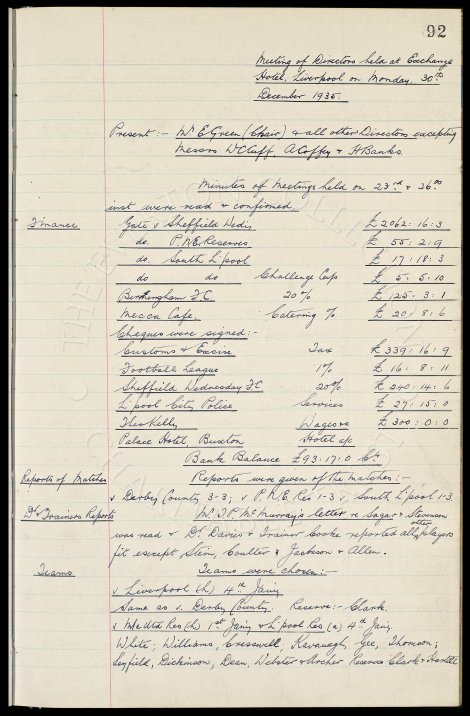 92
Meeting of Directors held at Exchange
Hotel, Liverpool on Monday, 30th
December 1935.
Present :- Mr E Green (Chair) & all other Directors excepting
Messrs W Cuff, A Coffey & H Banks.
Minutes of Meetings held on 23rd & 26th
inst were read & confirmed.
Finance Gate v Sheffield Wedy £2062:16:3
do. P.N.E. Reserves £ 55:2:9
do. South L'pool £ 17:18:3
do do Challenge Cup £ 5:5:10
Birmingham F.C. 20% £125:3:1
Mecca Cafe, Catering % £ 20:8:6
Cheques were signed:-
Customs & Excise Tax £339:16:9
Football League 1% £ 16:8:11
Sheffield Wednesday FC 20% £240:14:6
L'pool City Police Services £ 27:15:0
Theo Kelly Wages a/c £300:0:0
Palace Hotel, Buxton Hotel a/c
Bank Balance £93.17.0 Cr.
Reports of Matches Reports were given of the matches:-
v Derby County 3-3, v P.N.E. Res 1-3, v South L'pool 1-3
Dr & Trainers Reports Mr T.P. McMurray's letter re Sagar & Stevenson
was read & Dr. Davies & Trainer Cooke reported all other players
fit except Stein, Coulter & Jackson & Allen.
Teams Teams were chosen:-
v Liverpool (h) 4th Jany
Same as v. Derby County. Reserve:- Clark.
v M/c Utd Res (h) 1st Jany & L'pool Res (a) 4th Jany
White; Williams, Cresswell; Kavanagh, Gee, Thomson;
Leyfield, Dickinson, Dean, Webster & Archer Reserves Clark &